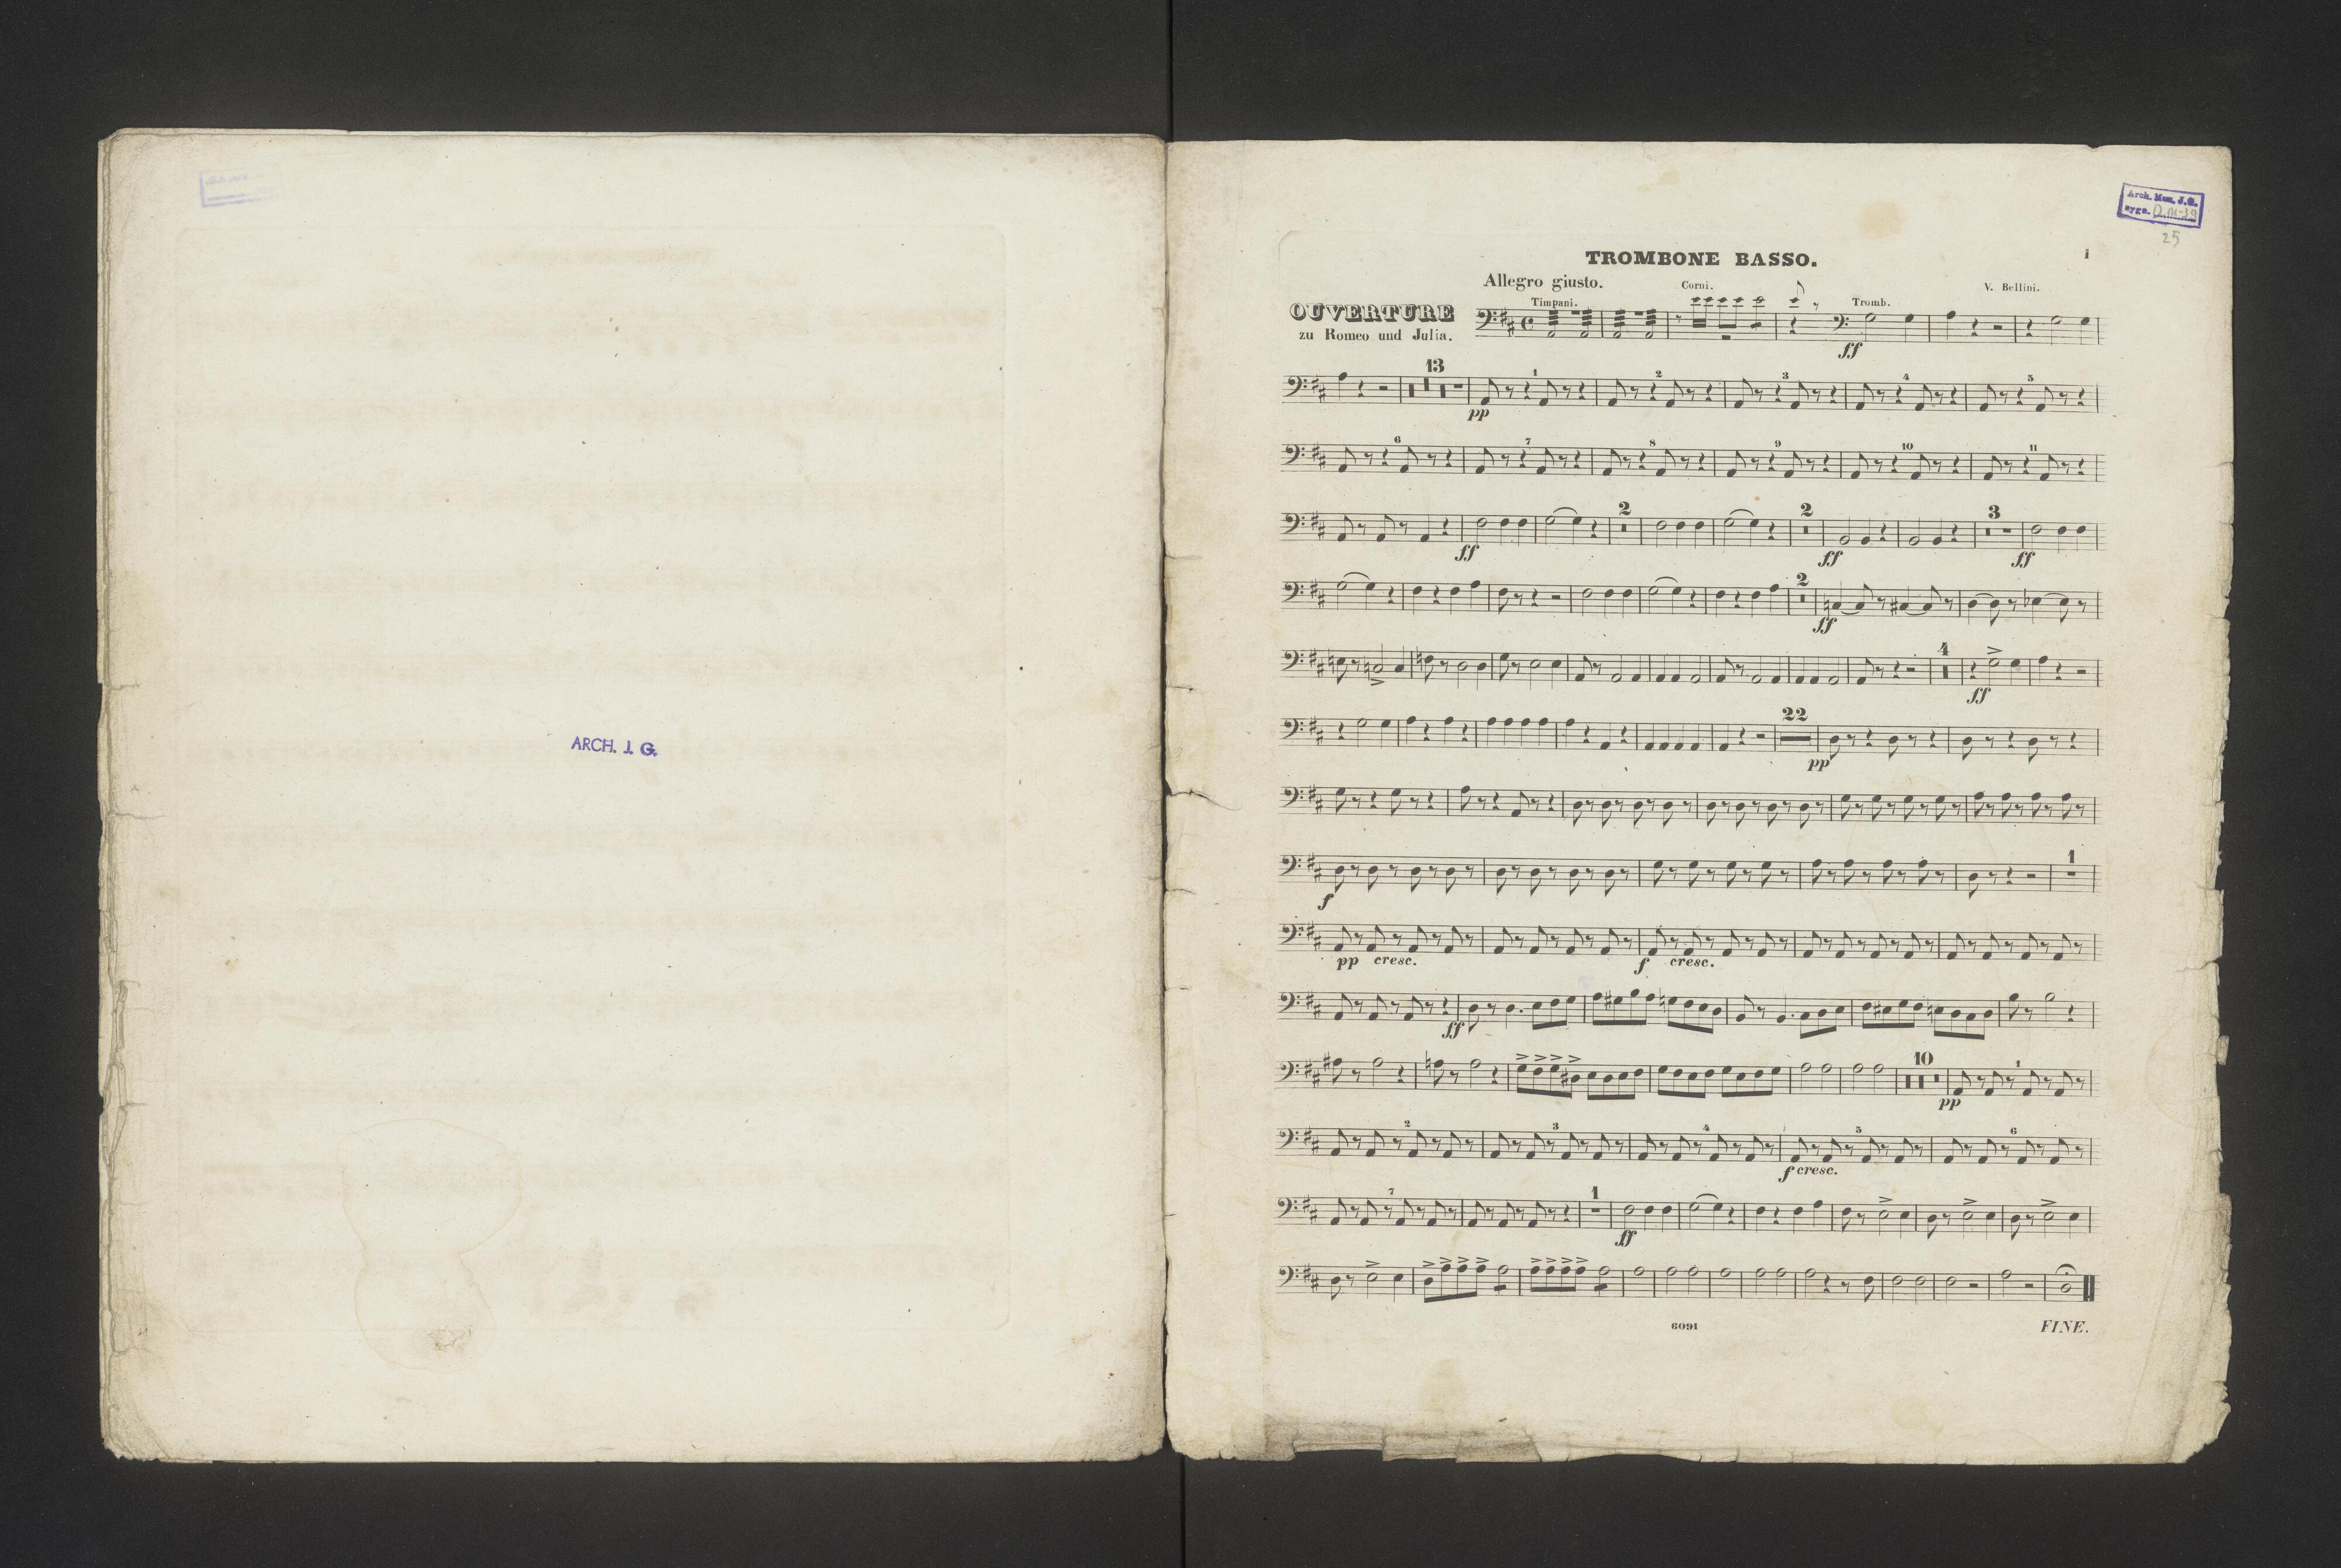 ARCH. J. G.
Arch. Mus. J. G.
sygn. D.IX-39
25
TROMBONE BASSO.
1
Allegro giusto.
OUVERTURE
zu Romeo und Julia.
Timpani.
Corni.
Tromb.
V. Bellini.
ff
13
1 2 3 4 5
pp
6 7 8 9 10 11
2 2 3
ff ff ff
2
ff
4
ff
22
pp
1
f
pp cresc. f cresc.
ff
10 1
pp
2 3 4 5 6
f cresc.
7 1
ff
6091
FINE.